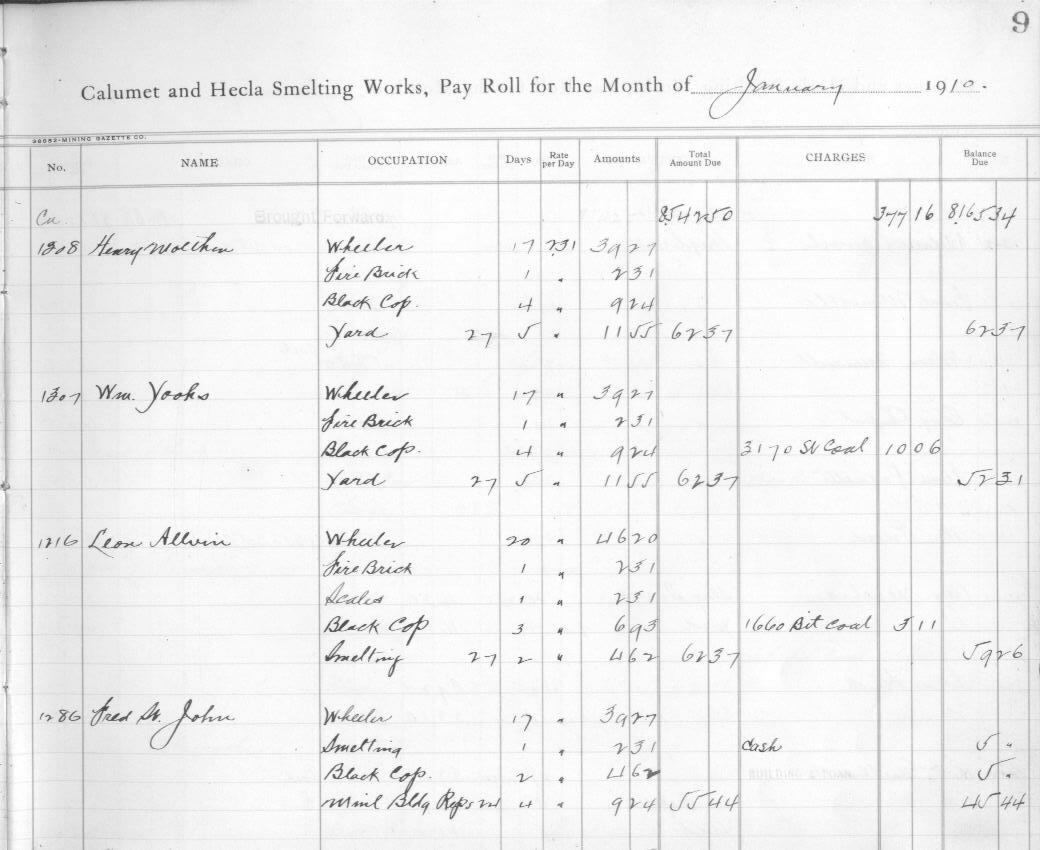 9
Calumet and Hecla Smelting Works, Pay Roll for the Month of January 1910.
26082-MINING GAZETTE CO.
No. NAME OCCUPATION Days Rate per Day Amounts Total Amount Due CHARGES Balance Due
Brought Forward 8542 50 377 16 8165 34
1308 Henry Wheeler 17 2.31 39 27
Fire Brick 1 " 2 31
Black Cop. 4 " 9 24
Yard 27 5 " 11 55 62 37 62 37
1307 Wm. Yooks Wheeler 17 " 39 27
Fire Brick 1 " 2 31
Black Cop. 4 " 9 24 3170 Coal 10 06
Yard 27 5 " 11 55 62 37 52 31
1216 Leon Allvin Wheeler 20 " 46 20
Fire Brick 1 " 2 31
Scales 1 " 2 31
Black Cop 3 " 6 93 1660 Bit Coal 3 11
Smelting 27 2 " 4 62 62 37 59 26
1286 Fred St. John Wheeler 17 " 39 27
Smelting 1 " 2 31 Cash 5 "
Black Cop. 2 " 4 62 5 "
Minl Bldg Reps 24 4 " 9 24 55 44 45 44